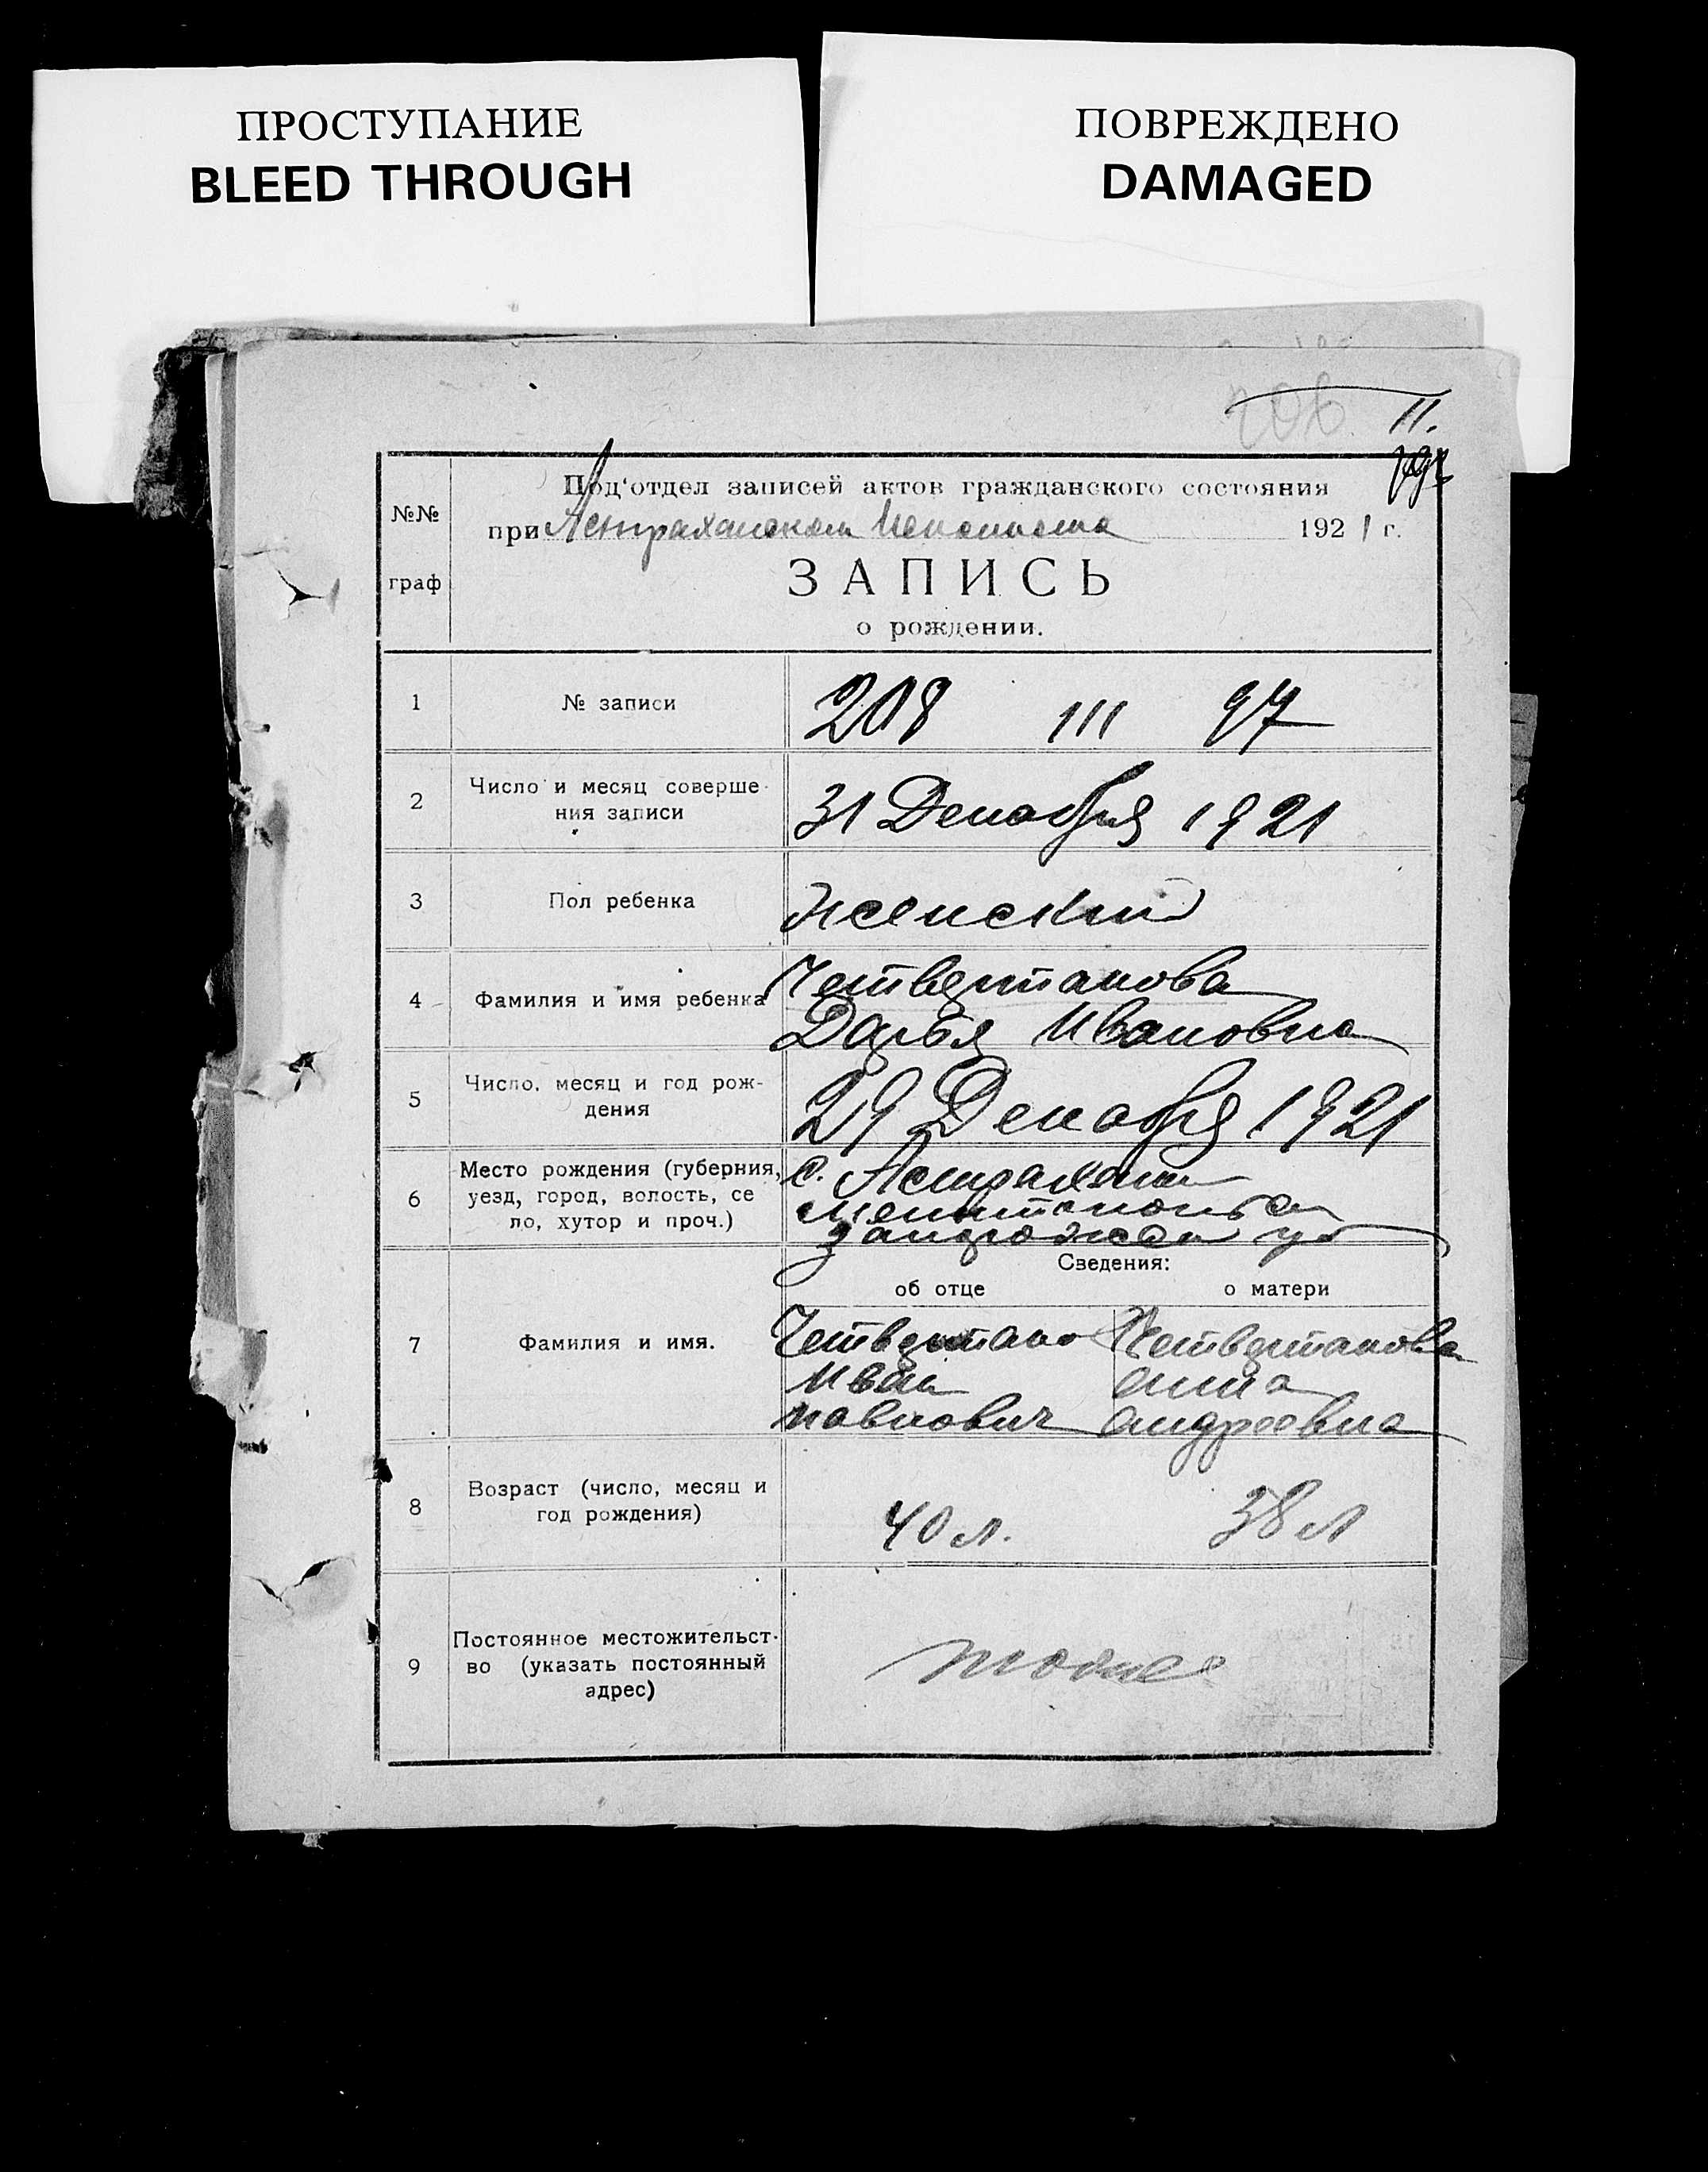 ПРОСТУПАНИЕ
BLEED THROUGH
ПОВРЕЖДЕНО
DAMAGED
206
11.
№№
граф
Под'отдел записей актов гражданского состояния
при Астраханском Исполкома 1921 г.
ЗАПИСЬ
о рождении.
1 № записи 208 III 97
2 Число и месяц соверше-
ния записи
31 Декабря 1921
3 Пол ребенка Женский
4 Фамилия и имя ребенка
Четвертакова
Дарья Ивановна
5 Число, месяц и год рож-
дения
29 Декабря 1921
6 Место рождения (губерния,
уезд, город, волость, се
ло, хутор и проч.)
с. Астрахани
Сведения:
об отце о матери
7 Фамилия и имя.
Четвертако Четвертакова
Иван Анна
Павлович Андреевна
8 Возраст (число, месяц и
год рождения)
40 л. 38 л
9 Постоянное местожительст-
во (указать постоянный
адрес)
тоже